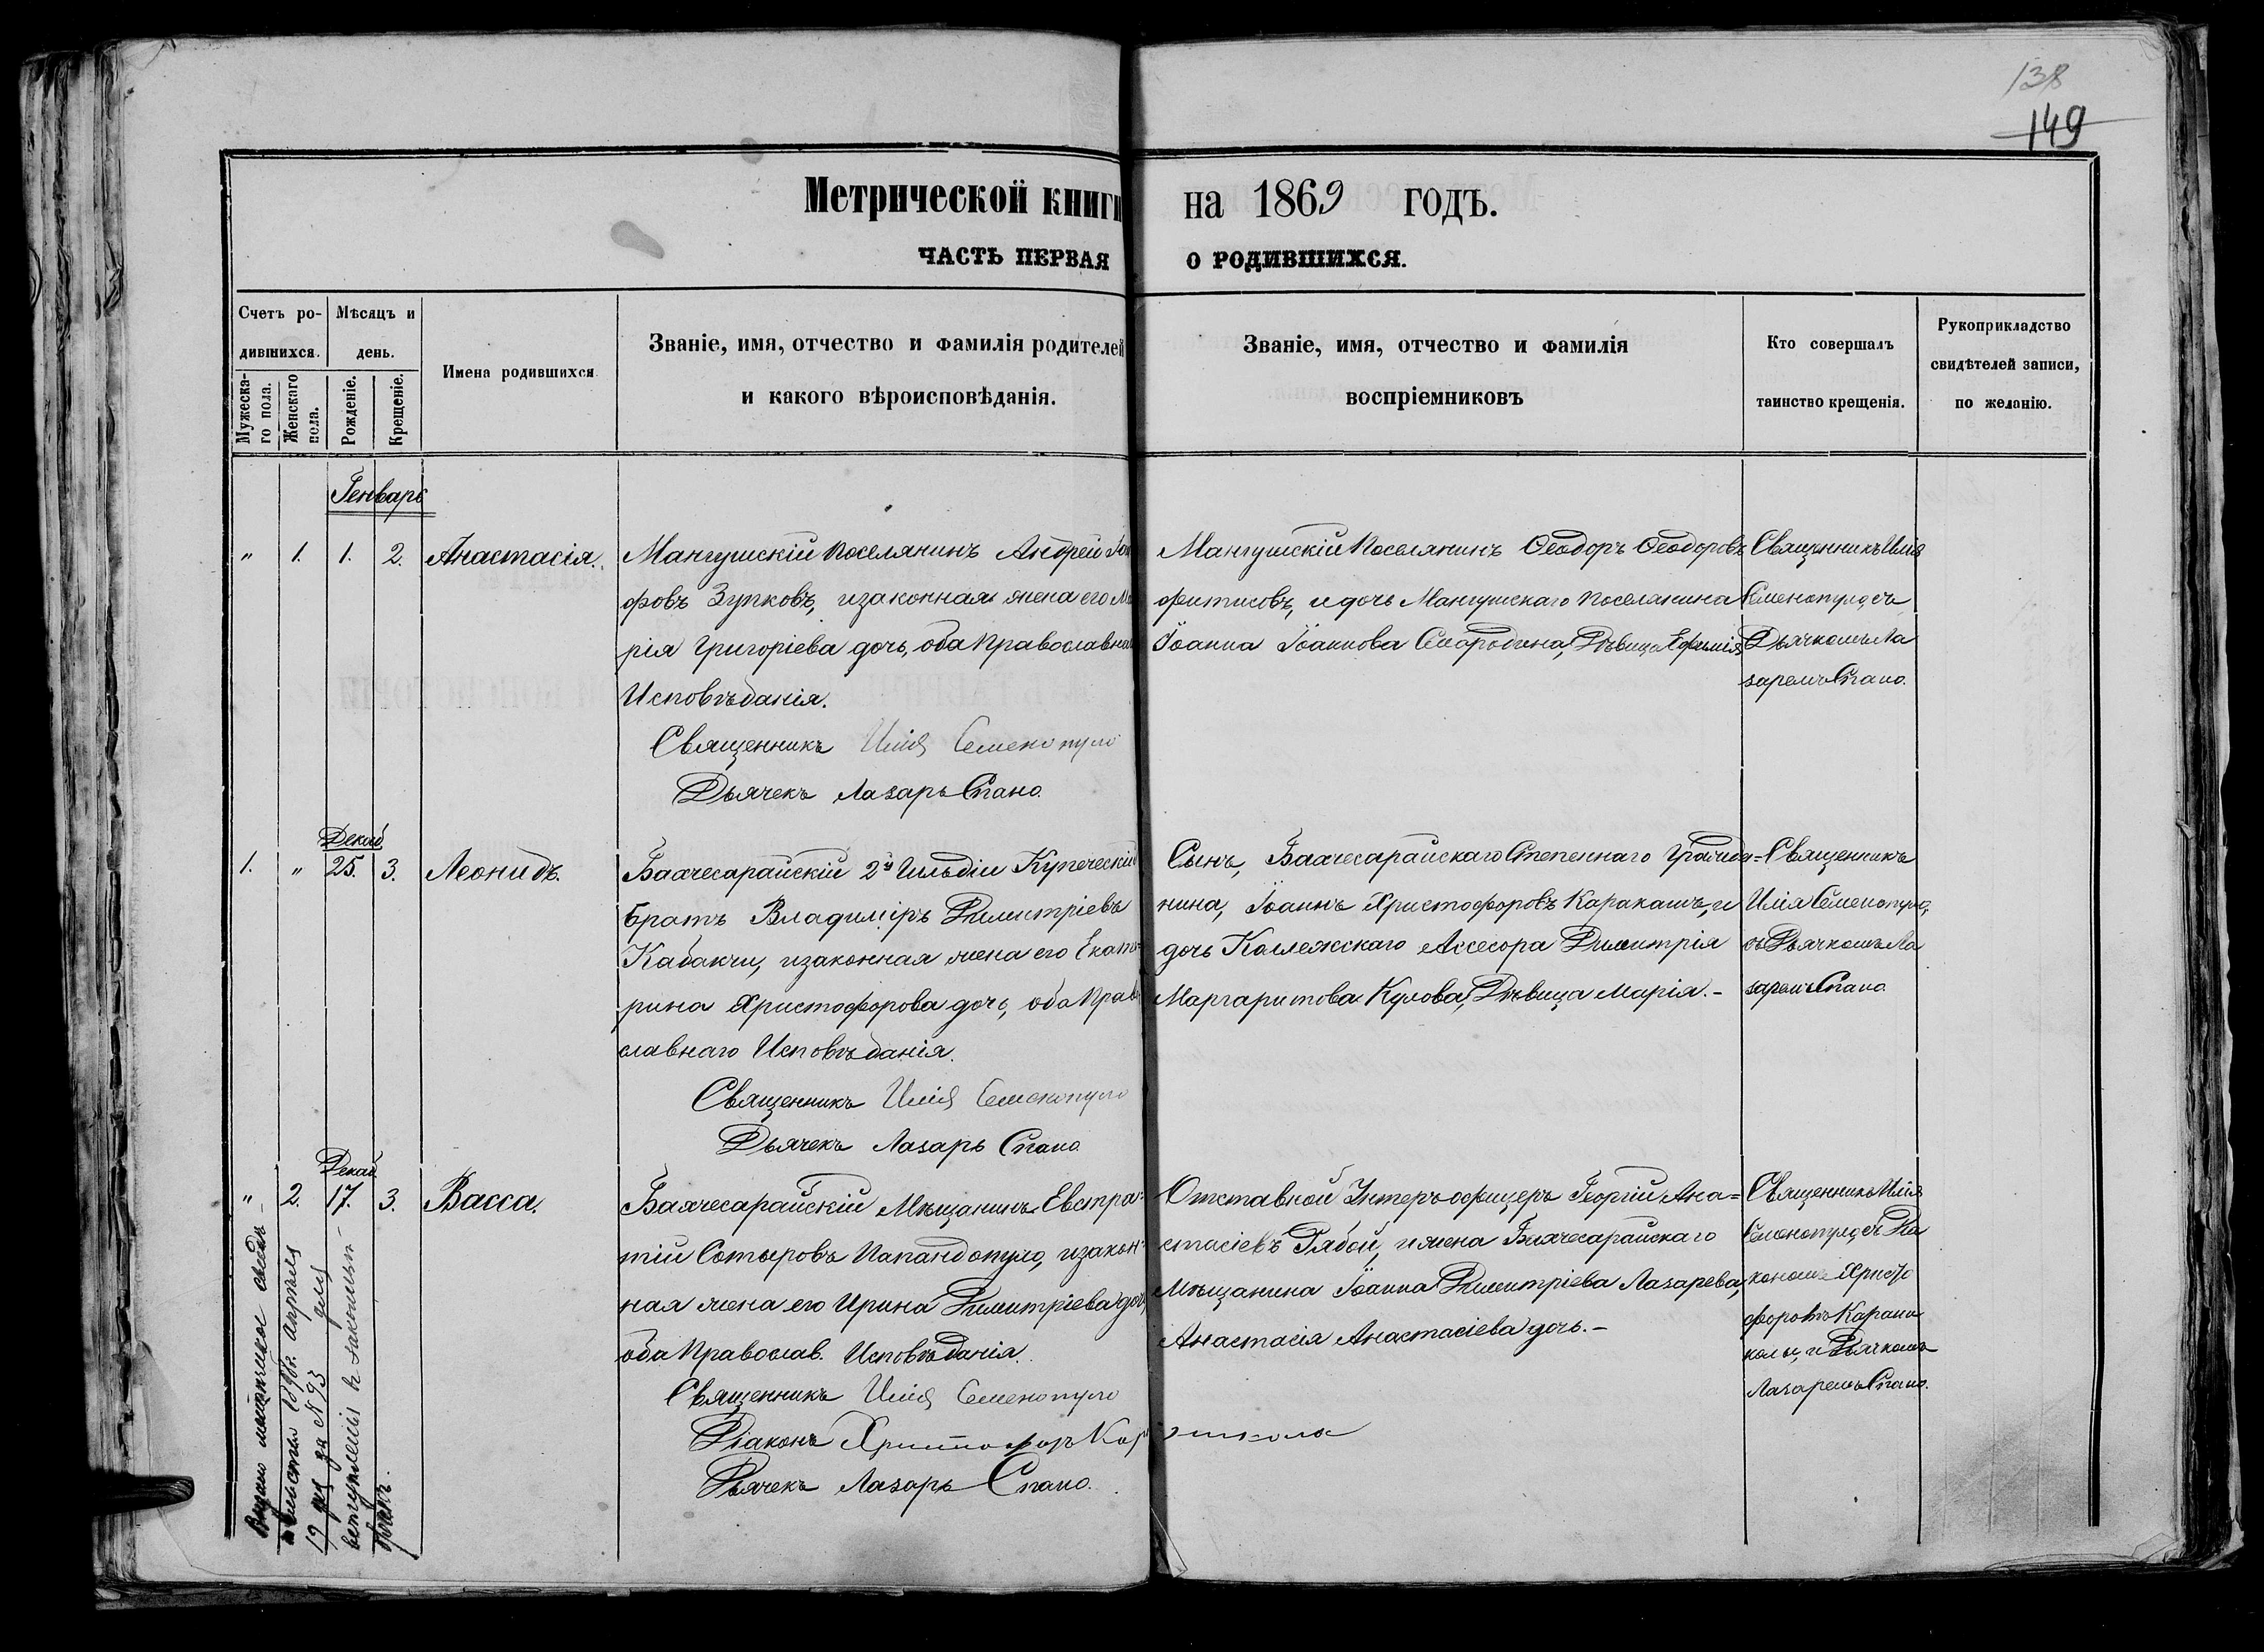 138
149
Метрической книги на 1869 годъ.
ЧАСТЬ ПЕРВАЯ О РОДИВШИХСЯ.
Счетъ ро-
дившихся.
Мужеска-
го пола.
Женскаго
пола.
Мѣсяцъ и
день.
Рожденіе.
Крещеніе.
Имена родившихся
Званіе, имя, отчество и фамилія родителей
и какого вѣроисповѣданія.
Званіе, имя, отчество и фамилія
воспріемниковъ
Кто совершалъ
таинство крещенія.
Рукоприкладство
свидѣтелей записи,
по желанію.
Генварь
" 1. 1. 2. Анастасія.
Мангушскій поселянинъ Андрей
форъ Зупковъ, изаконная жена его Ма
рія Григоріева дочь, оба Православна
Исповѣданія.
Священникъ Илія Семенопуло
Дьячекъ Лазарь Спано.
Мангушскій Поселянинъ Ѳеодоръ Ѳеодоровъ
фитисовъ, и дочь Мангушскаго поселянина
Іоанна Іоаннова Скародина, Дѣвица Ефимія
Священникъ Илія
Семенопуло, съ
Дьячкомъ Ла
заремъ Спано.
Декаб
1. " 25. 3. Леонидъ.
Бахчесарайскій 2й Гильдіи Купеческій
братъ Владиміръ Димитріевъ
Кабакчи, изаконная жена его Екате
рина Христофорова дочь, оба Прав
славнаго Исповѣданія.
Священникъ Илія Семенопуло
Дьячекъ Лазарь Спано
Сынъ, Бахчесарайскаго Степеннаго Гражда=
нина, Іоаннъ Христофоровъ Каракашъ, и
дочь Коллежскаго Ассесора Димитрія
Маргаритова Кулова, Дѣвица Марія.-
Священникъ
Илія Семенопуло,
съ Дьячкомъ Ла
заремъ Спано
Декаб
" 2. 17. 3. Васса.
Бахчесарайскій Мѣщанинъ Евстра=
тій Сотыровъ Папандопуло, изакон=
ная жена его Ирина Димитріева дочь,
оба Православ. Исповѣданія.
Священникъ Илія Семенопуло
Діаконъ Христофоръ Каракикола
Дьячекъ Лазарь Спано.
Отставной Унтеръ офицеръ Георгій Ана=
стасіевъ Рябой, и жена Бахчесарайскаго
Мѣщанина Іоанна Димитріева Лазарева,
Анастасія Анастасіева дочь.-
Священникъ Илія
Семенопуло, съ Діа
кономъ Христо
форомъ Карани
колы, и Дьячкомъ
Лазаремъ Спано.
Выдано метрическое свидѣ-
тельство 1898г. апрѣля
19 дня за N 93 для
вступленія въ законный
бракъ.